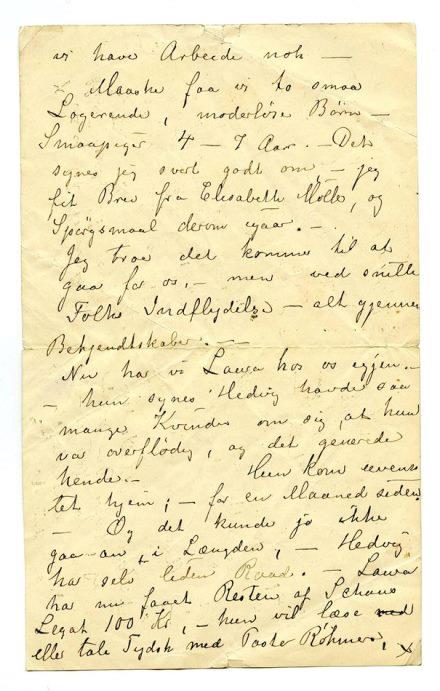 vi have Arbeide nok —
Maaske faa vi to smaa
Logerende, moderløse Børn —
Smaapiger 4 — 7 Aar. — Det
synes jeg svært godt om, — jeg
fik Brev fra Elisabeth Mølle, og
Spørgsmaal derom igaar. —
Jeg troe det kommer til at
gaa for os, — men ved snille
Folks Indflydelse — alt gjennem
Bekjendtskaber. —
Nu har vi Laura hos os igjen. —
— hun synes Hedvig havde saa
mange Kvinder om sig, at hun
var overflødig, og det generede
hende. — Hun kom
tet hjem; — for en Maaned siden
— Og det kunde jo ikke
gaa an, i Længden, — Hedvig
har selv liden Raad. — Laura
har nu faaet Resten af Schaus
Legat 100 Kr, — hun vil læse ved
eller tale Tydsk med Pastor Røhmers,